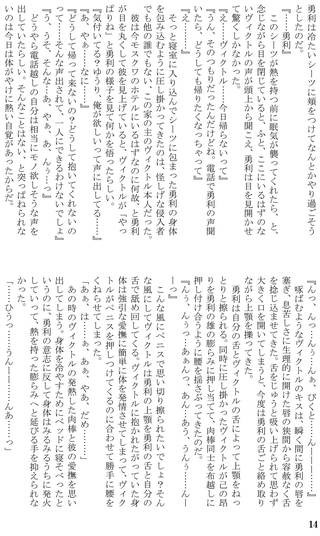 勇利は冷たいシーツに頬をつけてなんとかやり過ごそう
としたのだ。
『……勇利』
このシーツが熱を持つ前に眠気が襲ってくれたら、と、
念じながら目を閉じていると、ふと、ここにいるはずのな
いヴィクトルの声が頭上から聞こえ、勇利は目を見開かせ
て驚くしかなかった。
『えっ、ヴィクトルっ……今日帰らないって』
『うん、そのつもりだったんだけどね。電話で勇利の声聞
いたら、どうしても帰りたくなっちゃって』
そっと寝室に入り込んでシーツに包まった勇利の身体
を包み込むように圧し掛かってきたのは、怪しげな侵入者
でも他の誰でもない、この家の主のヴィクトル本人だった。
彼は今モスクワのホテルにいるはずなのに何故、と勇利
が目を丸くして彼を見上げていると、ヴィクトルが「やっ
ぱりね」と勇利の様子を見て何かを悟ったらしい。
『気付いてる？ゆうり、俺が欲しいって声に出てる……』
『あ、やぁっ……』
『どうして帰って来ないの？どうして抱いてくれないの
って……そんな声出されて、一人にできるわけないでしょ』
『う、うそ、そんな…あ、やぁ、あ、んぅーっ』
どうやら電話越しの自分は相当にモノ欲しそうな声を
出していたらしい。そんなことはない、と突っぱねられな
いのは今日は体がやけに熱い自覚があったからだ。
啄ばむようなヴィクトルのキスは、瞬く間に勇利の唇を
塞ぎ、息苦しさに生理的に開けた唇の狭間から容赦なく舌
を捻じ込ませてきた。舌をじゅうと吸い上げられて思わず
大きく口を開いてしまうと、今度は勇利の舌ごと絡め取り
ながら上顎を擽ってきた。
勇利は自分の舌とヴィクトルの舌によって上顎をねっ
とりと擦られる。同時に圧し掛かったヴィクトルが己の昂
こんな風にペニスで思い切り擦られたいでしょ？そん
な風にしてヴィクトルは勇利の上顎を勇利の舌と自分の
舌で舐め回してくる。ヴィクトルに抱かれたがっていた身
体は強引な愛撫に簡単に体を発情させてしまって、ヴィク
トルがペニスを押しつけてくるのに合わせて勝手に腰を
くねらせてしまう。
あの時のヴィクトルの発熱した肉棒と彼の愛撫を思い
出してしまう。身体を冷やすためにベッドに寝そべったと
いうのに、勇利の意志に反して身体はみるみるうちに発火
していって、熱を持った膨らみへと延びる手を抑えられな
かった。
14